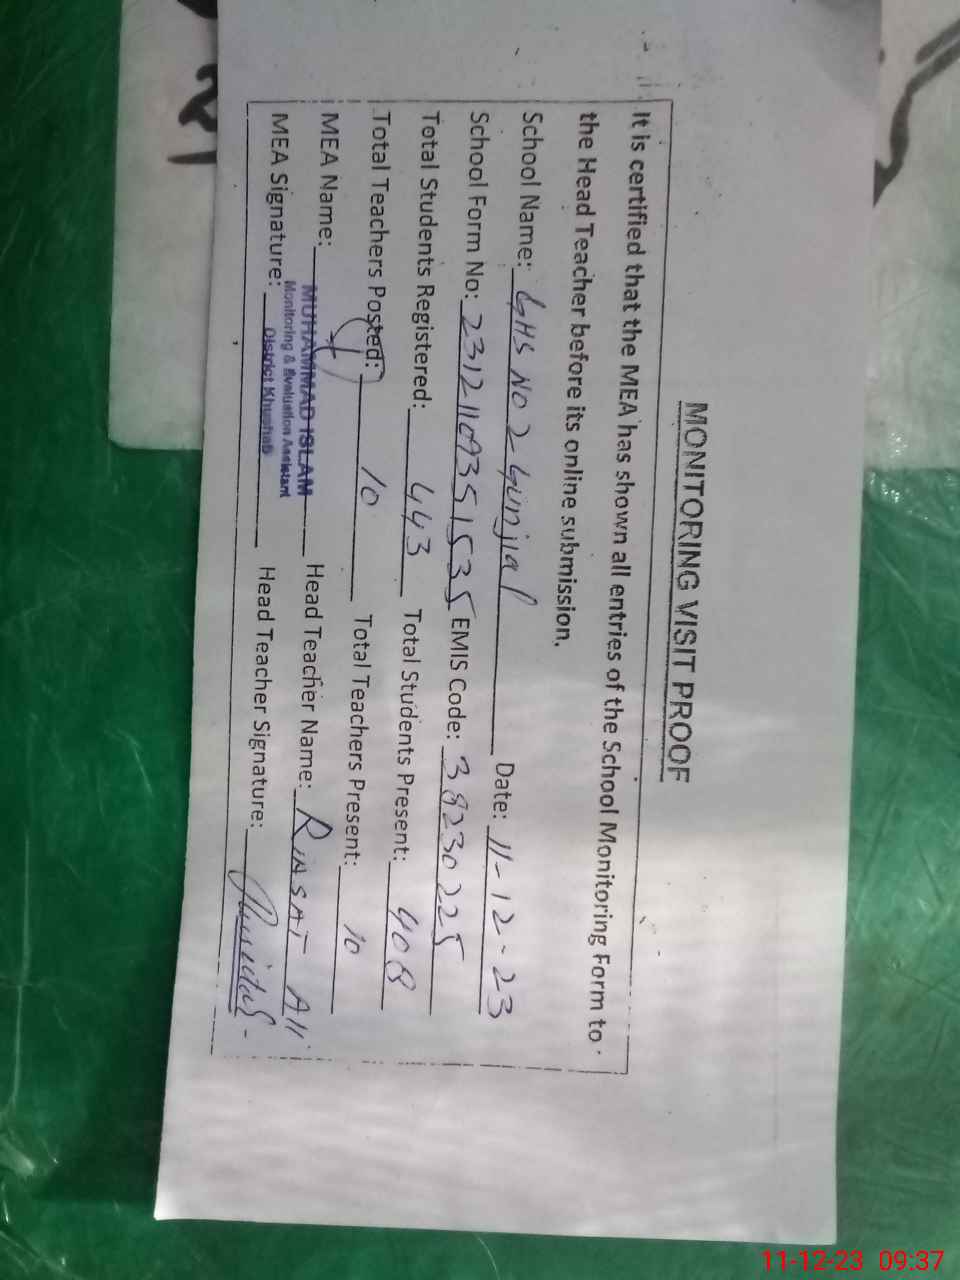 MONITORING VISIT PROOF
It is certified that the MEA has shown all entries of the School Monitoring Form to
the Head Teacher before its online submission.
School Name: GHS NO 2 Gunjial Date: 11-12-23
School Form No: 23121109351535 EMIS Code: 38230225
Total Students Registered: 443 Total Students Present: 408
Total Teachers Posted: 10 Total Teachers Present: 10
MEA Name: MUHAMMAD ISLAM Head Teacher Name: RIASAT Ali
Monitoring & Evaluation Assistant
District Khushab
MEA Signature: Head Teacher Signature:
11-12-23 09:37